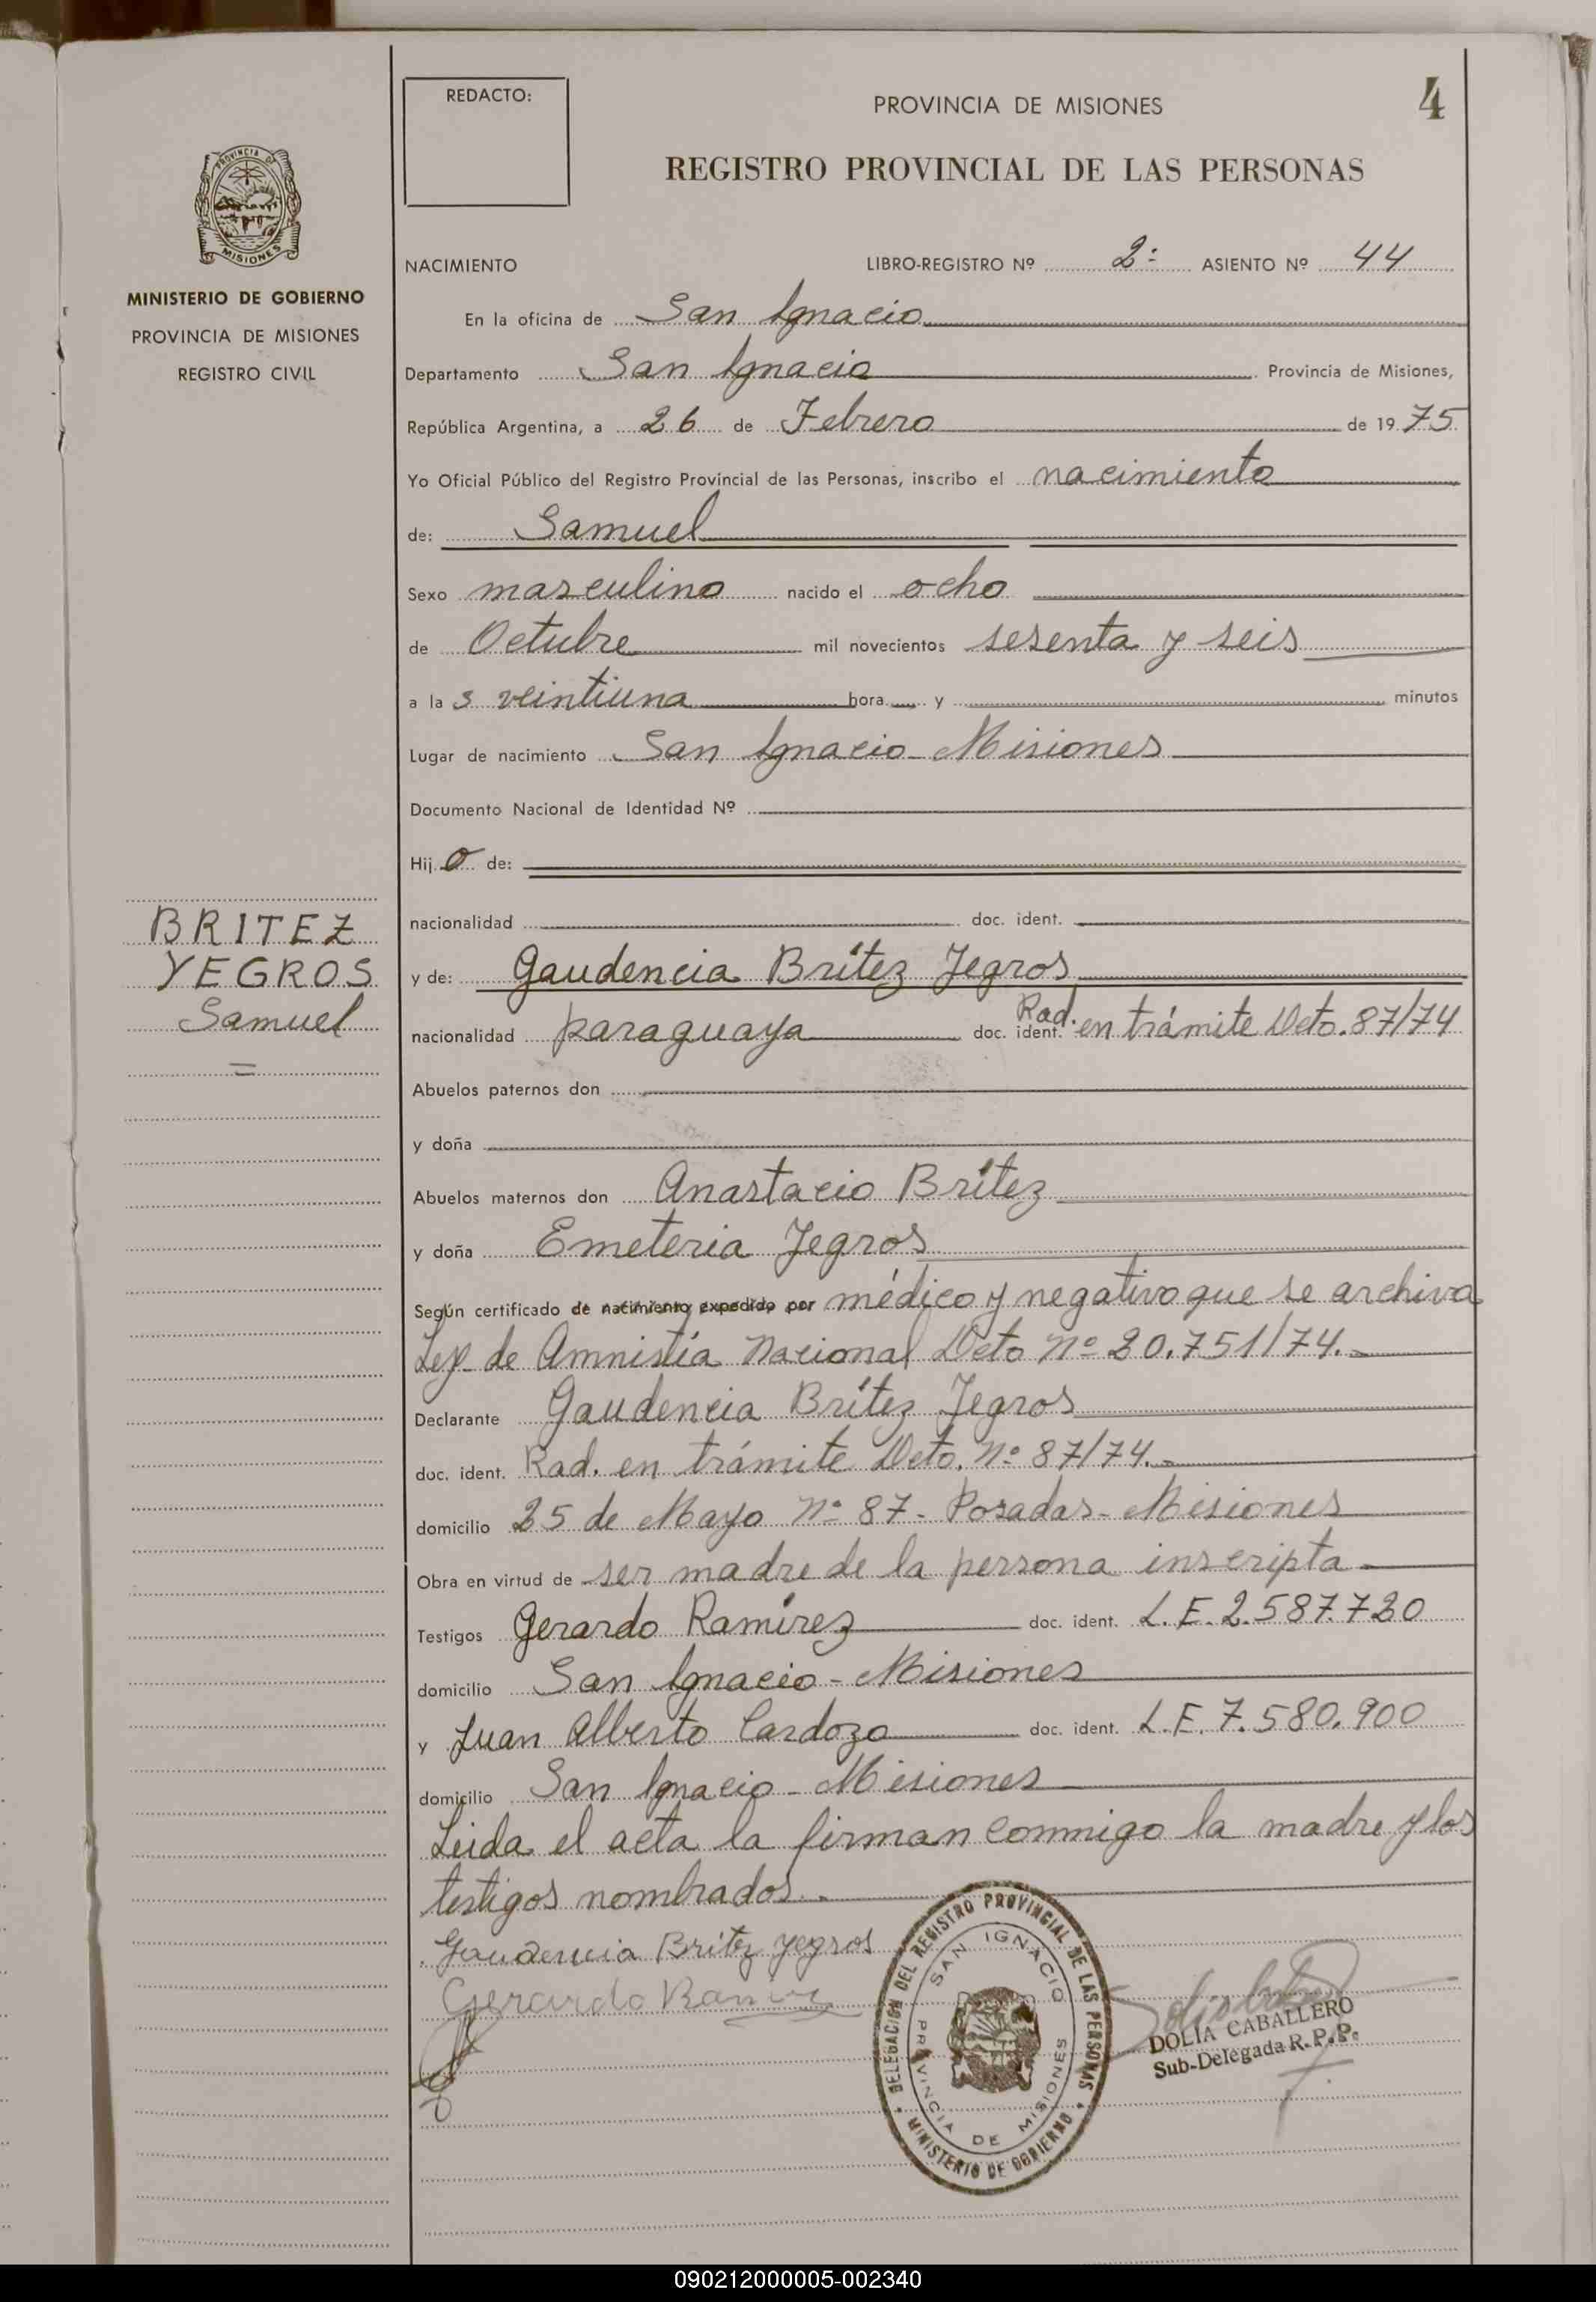 REDACTO:
PROVINCIA DE MISIONES
4
REGISTRO PROVINCIAL DE LAS PERSONAS
PROVINCIA DE
MISIONES
MINISTERIO DE GOBIERNO
PROVINCIA DE MISIONES
REGISTRO CIVIL
NACIMIENTO LIBRO-REGISTRO Nº 2º ASIENTO Nº 44
En la oficina de San Ignacio
Departamento San Ignacio Provincia de Misiones,
República Argentina, a 26 de Febrero de 1975
Yo Oficial Público del Registro Provincial de las Personas, inscribo el nacimiento
de: Samuel
Sexo masculino nacido el ocho
de Octubre mil novecientos sesenta y seis
a las veintiuna hora y minutos
Lugar de nacimiento San Ignacio - Misiones
Documento Nacional de Identidad Nº
Hijo de:
nacionalidad doc. ident.
BRITEZ
YEGROS
Samuel
=
y de: Gaudencia Brítez Yegros
nacionalidad paraguaya doc. ident. Rad. en trámite Dcto. 87/74
Abuelos paternos don
y doña
Abuelos maternos don Anastacio Brítez
y doña Emeteria Yegros
Según certificado de nacimiento expedido por médico y negativo que se archiva
Ley de Amnistía Nacional Dcto Nº 20.751/74.-
Declarante Gaudencia Brítez Yegros
doc. ident. Rad. en trámite Dcto. Nº 87/74.-
domicilio 25 de Mayo Nº 87 - Posadas - Misiones
Obra en virtud de ser madre de la persona inscripta
Testigos Gerardo Ramírez doc. ident. L.E. 2.587.720
domicilio San Ignacio - Misiones
y Juan Alberto Cardozo doc. ident. L.E. 7.580.900
domicilio San Ignacio - Misiones
Leida el acta la firman conmigo la madre y los
testigos nombrados.-
Gaudencia Britez yegros
Gerardo Ramirez
DELEGACION DEL REGISTRO PROVINCIAL DE LAS PERSONAS
SAN IGNACIO
PROVINCIA DE MISIONES
MINISTERIO DE GOBIERNO
DOLIA CABALLERO
Sub-Delegada R.P.P.
090212000005-002340